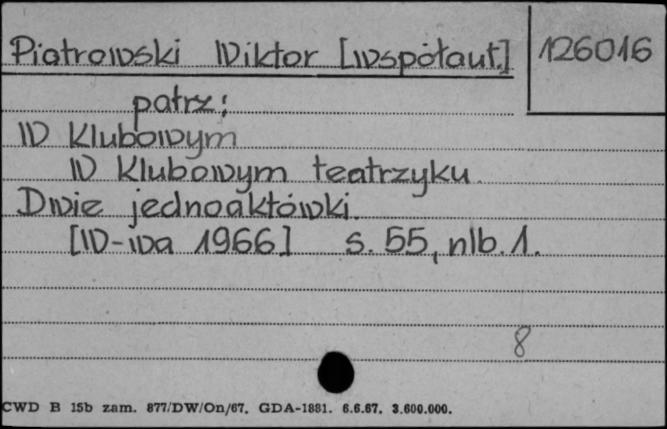 Piotrowski Wiktor [współaut.] 126016
patrz:
W Klubowym
W Klubowym teatrzyku.
Dwie jednoaktówki.
[W-wa 1966] s. 55, nlb. 1.
8
CWD B 15b zam. 877/DW/On/67. GDA-1881. 6.6.67. 3.600.000.